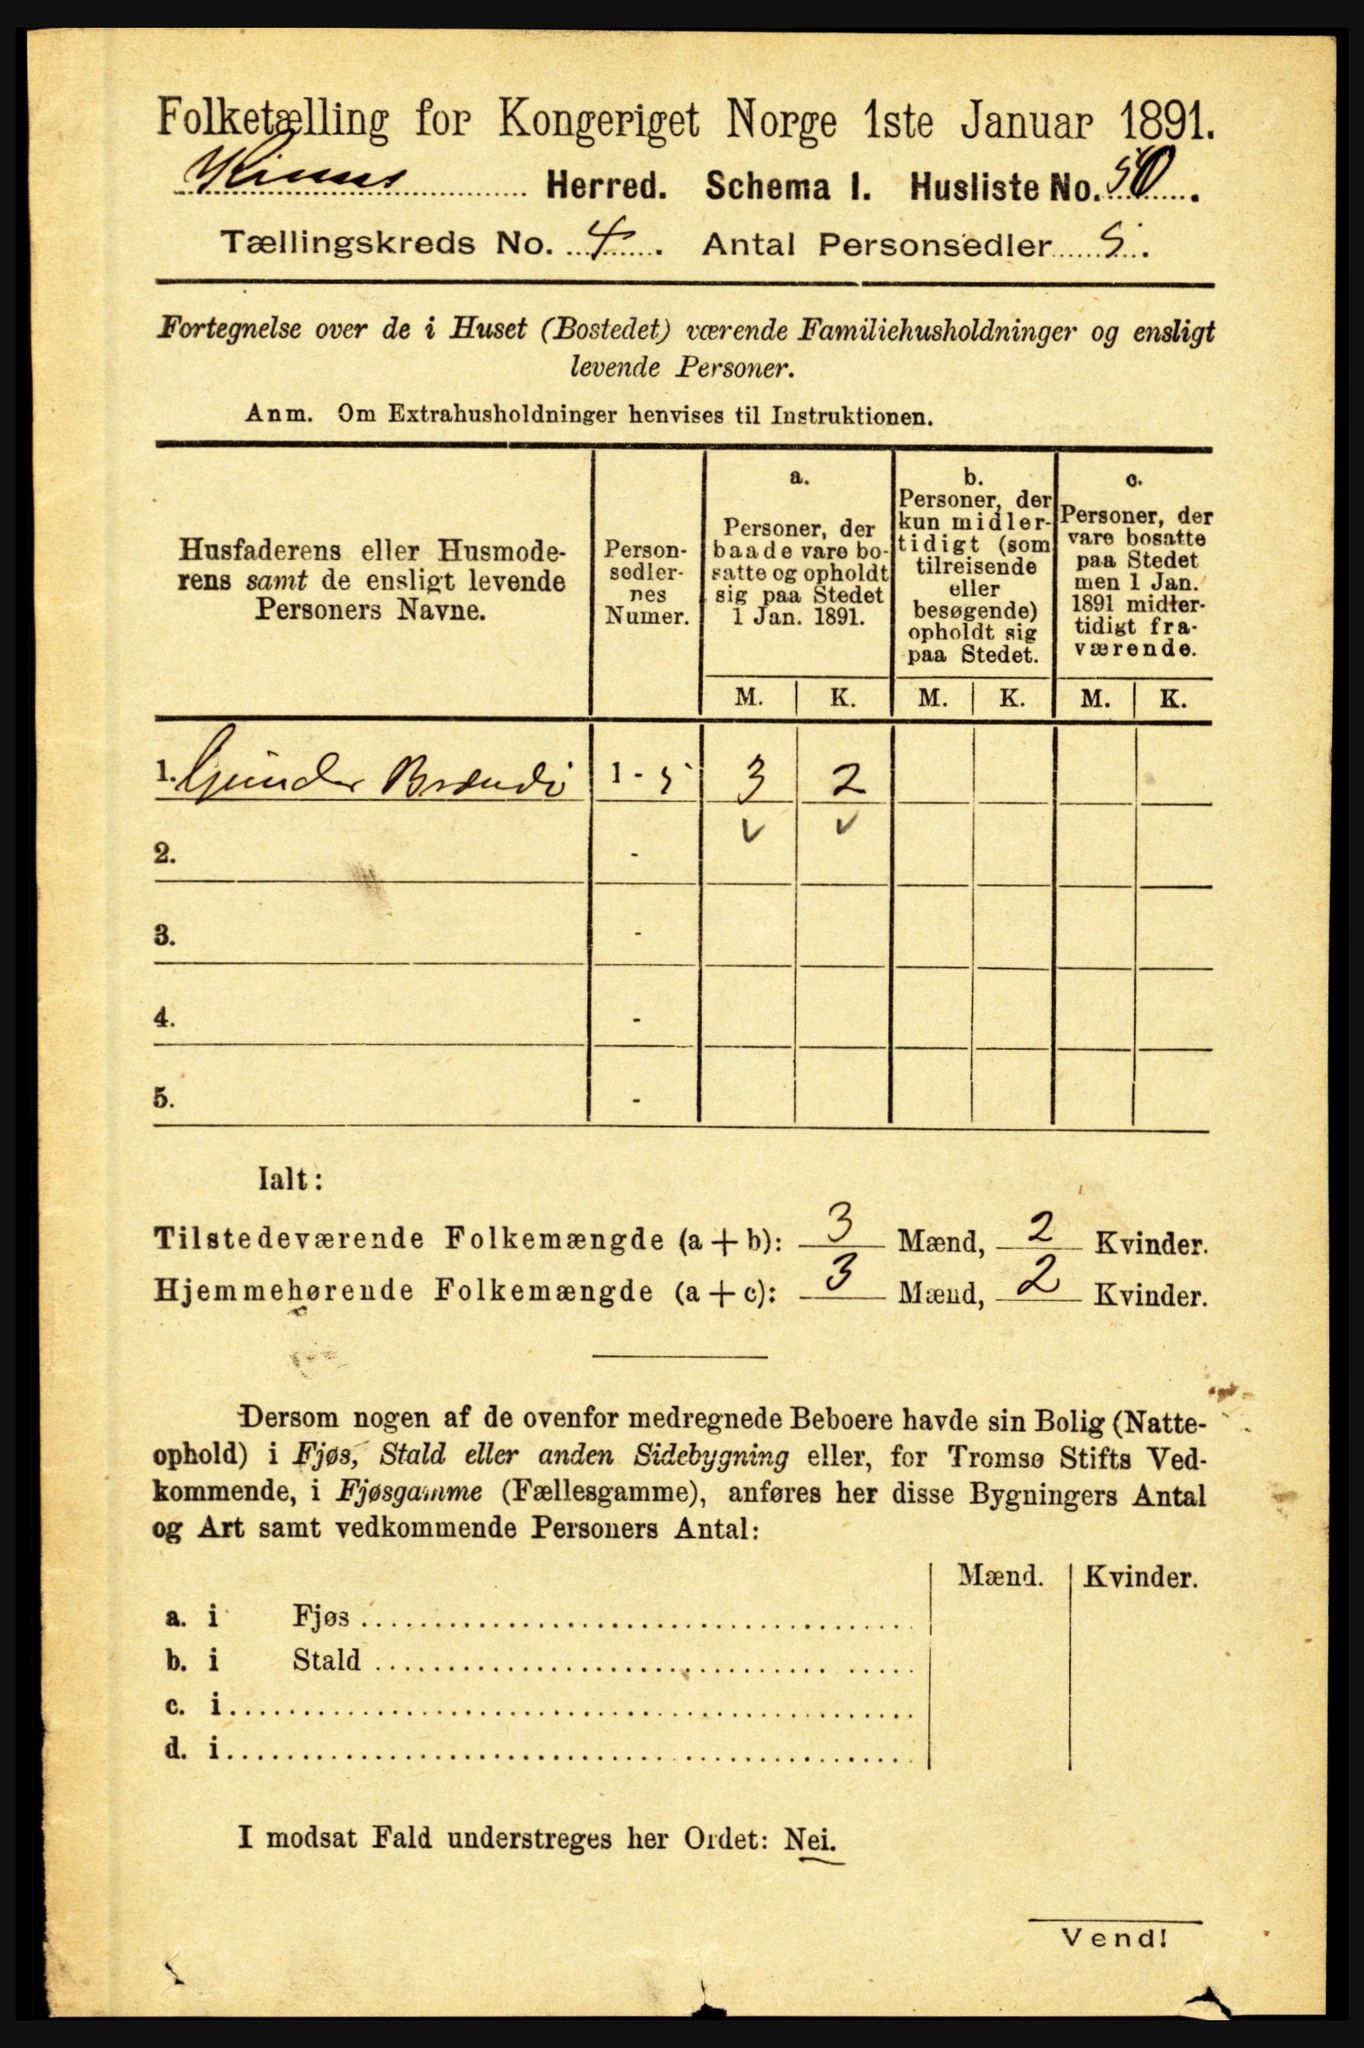 Folketælling for Kongeriget Norge 1ste Januar 1891.
Kinns Herred. Schema I. Husliste No. 50.
Tællingskreds No. 4. Antal Personsedler 5.
Fortegnelse over de i Huset (Bostedet) værende Familiehusholdninger og ensligt
levende Personer.
Anm. Om Extrahusholdninger henvises til Instruktionen.
Husfaderens eller Husmode-
rens samt de ensligt levende
Personers Navne.
Person-
sedler-
nes
Numer.
a.
Personer, der
baade vare bo-
satte og opholdt
sig paa Stedet
1 Jan. 1891.
b.
Personer, der
kun midler-
tidigt (som
tilreisende
eller
besøgende)
opholdt sig
paa Stedet.
c.
Personer, der
vare bosatte
paa Stedet
men 1 Jan.
1891 midler-
tidigt fra-
værende.
M. K. M. K. M. K.
1. Gunder 1 - 5 3 2
2. -
3. -
4. -
5. -
Ialt:
Tilstedeværende Folkemængde (a + b): 3 Mænd, 2 Kvinder.
Hjemmehørende Folkemængde (a + c): 3 Mænd, 2 Kvinder.
Dersom nogen af de ovenfor medregnede Beboere havde sin Bolig (Natte-
ophold) i Fjøs, Stald eller anden Sidebygning eller, for Tromsø Stifts Ved-
kommende, i Fjøsgamme (Fællesgamme), anføres her disse Bygningers Antal
og Art samt vedkommende Personers Antal:
Mænd. Kvinder.
a. i Fjøs
b. i Stald
c. i
d. i
I modsat Fald understreges her Ordet: Nei.
Vend!